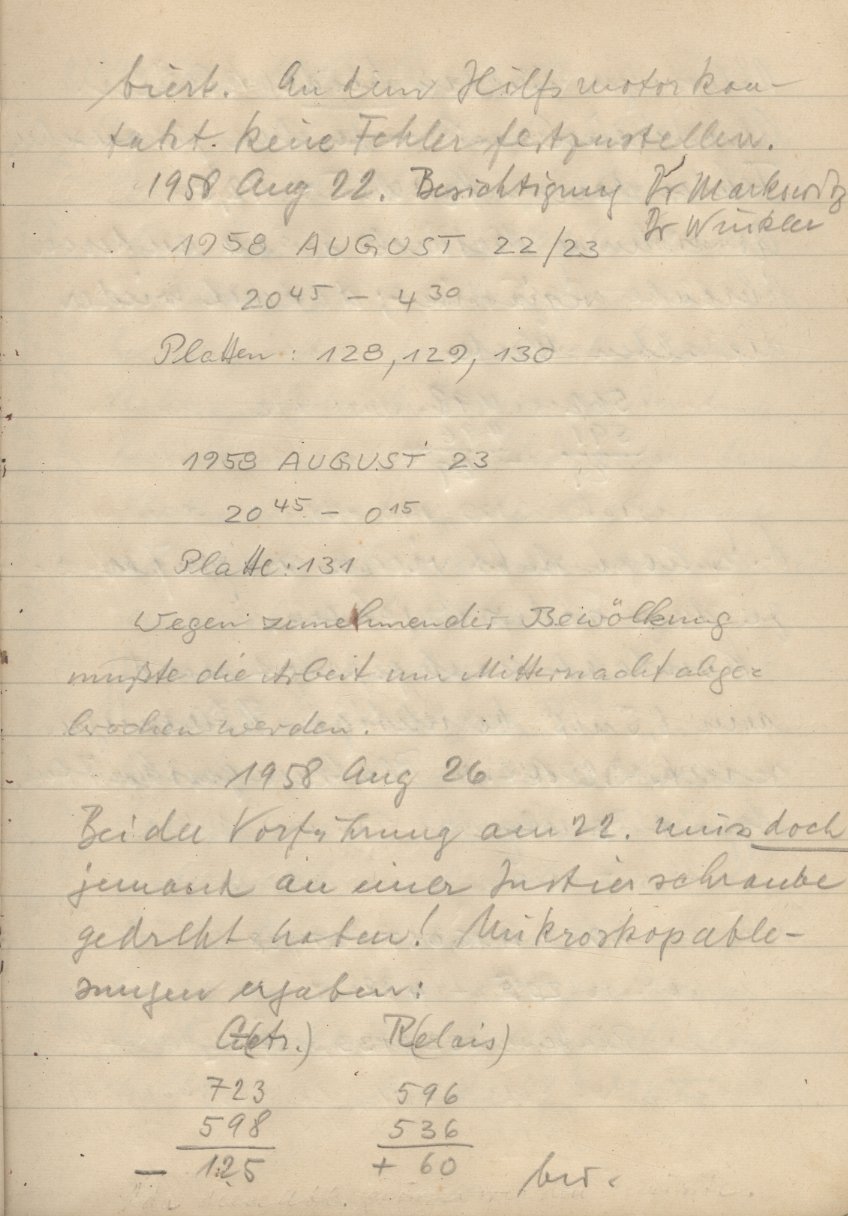 biert. An dem Hilfsmotorkon-
takt keine Fehler festzustellen.
1958 Aug 22. Besichtigung Dr Markowitz
Dr Winkler
1958 AUGUST 22/23
20 45 – 4 30
Platten: 128, 129, 130
1958 AUGUST 23
20 45 – 0 15
Platte: 131
Wegen zunehmender Bewölkung
mußte die Arbeit um Mitternacht abge=
brochen werden.
1958 Aug 26
Bei der Vorführung am 22. muss doch
jemand an einer Justierschraube
gedreht haben! Mikroskopable-
sungen ergaben:
R(elais)
723 596
598 536
– 125 + 60